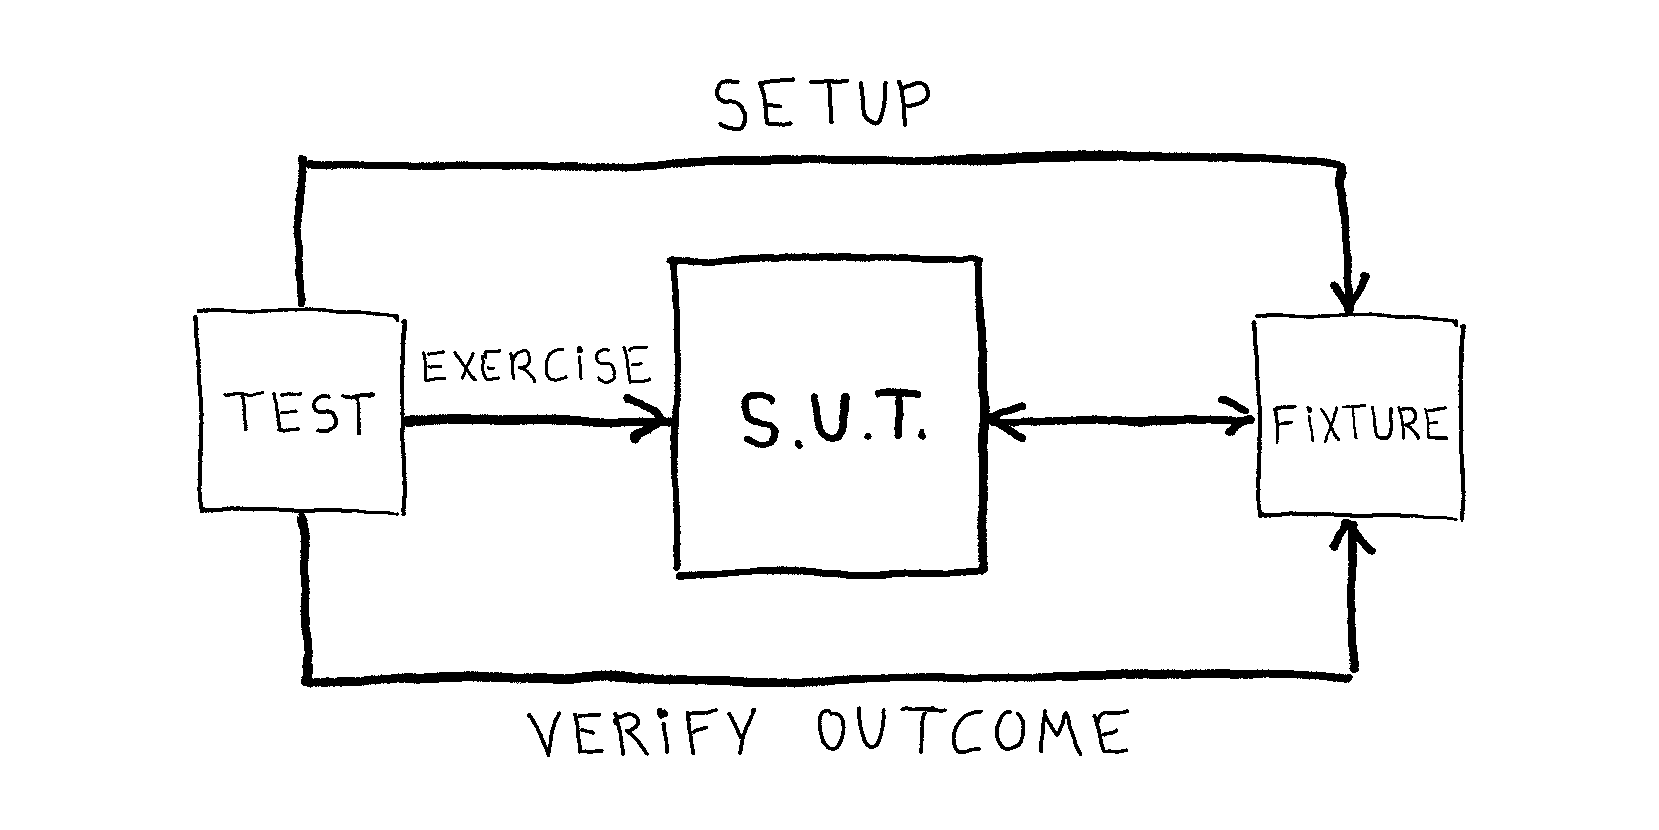 SETUP
EXERCISE
TEST
S.U.T.
FIXTURE
VERIFY OUTCOME